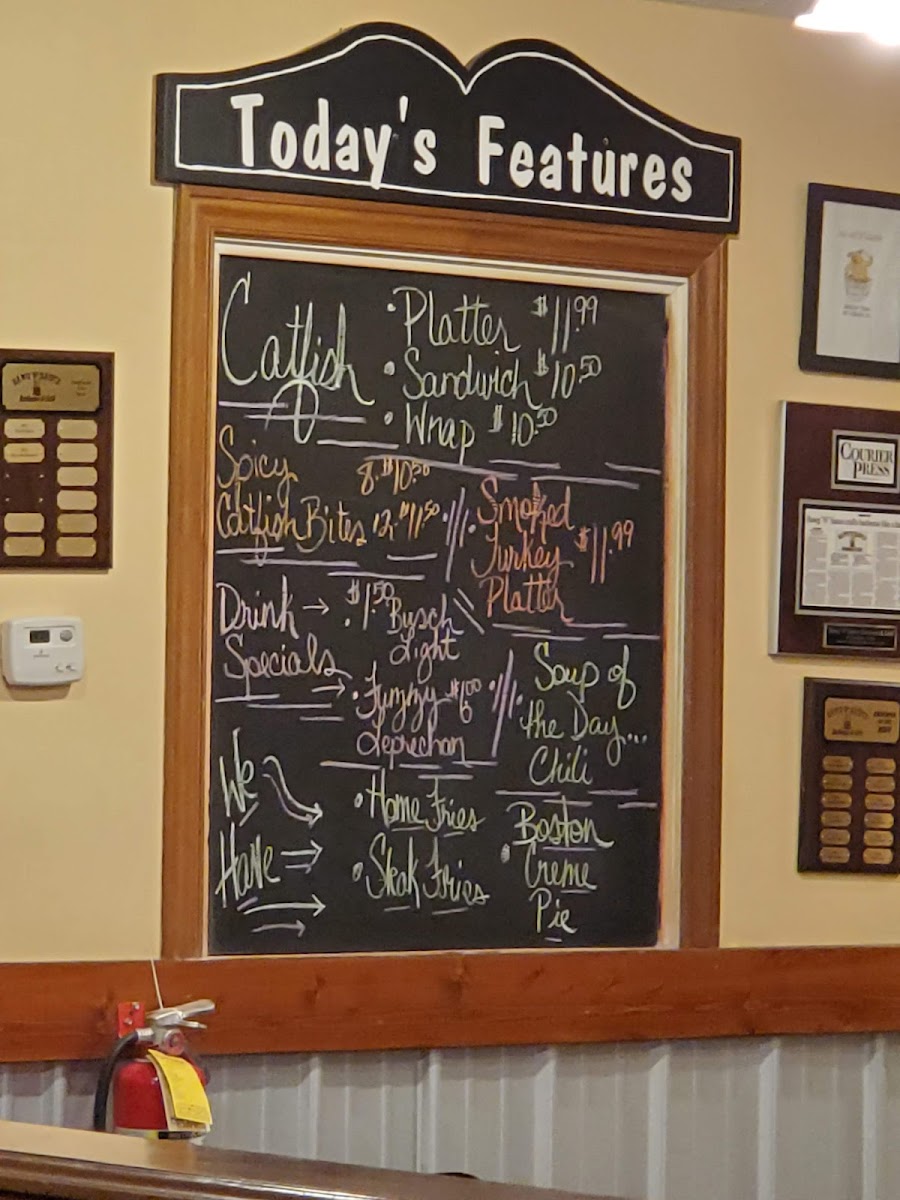 Today's Features
Catfish
• Platter $11.99
• Sandwich $10.50
• Wrap $10.50
Spicy
Catfish Bites
8-$10.50
12-$11.50
Smoked
Turkey
Platter
$11.99
Drink
Specials
$1.50
Busch
Light
• Yummy $6.00
Leprechan
Soup of
the Day...
Chili
We
Have
• Home Fries
• Steak Fries
• Boston
Creme
Pie
COURIER
PRESS